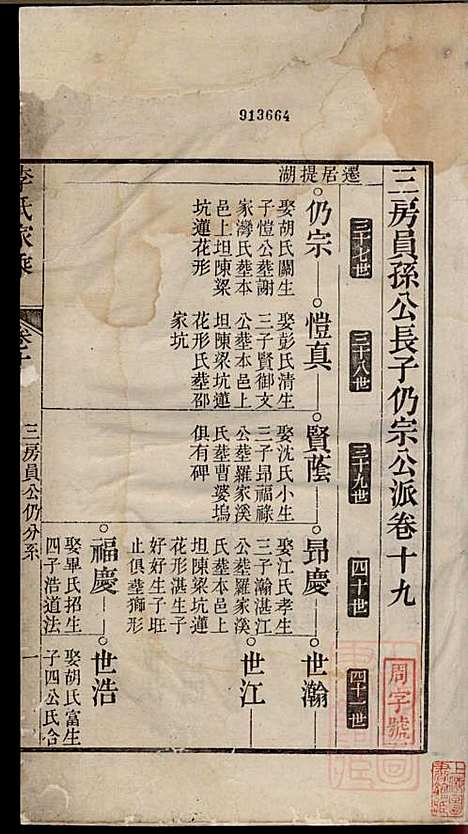 913664
三房員孫公長子仍宗公派卷十九
三十七世
三十八世
三十九世
四十世
四十一世
周字號
遷居提湖
仍宗
娶胡氏關生
子愷公塟謝
家灣氏塟本
邑上坦陳梁
坑蓮花形
愷真
娶彭氏清生
三子賢御文
公塟本邑上
坦陳梁坑蓮
花形氏塟邵
家坑
賢蔭
娶沈氏小生
三子昂福祿
公塟羅家溪
氏塟曹婆塢
俱有碑
昂慶
娶江氏孝生
三子瀚湛江
公塟羅家溪
氏塟本邑上
坦陳梁坑蓮
花形湛生子
好好生子旺
止俱塟獅形
世瀚
世江
福慶
娶畢氏招生
四子浩道法
世浩
娶胡氏富生
子四公氏合
李氏家乘
三房員公仍分系
一